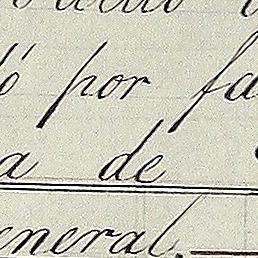 ó por fa
a de
eneral.